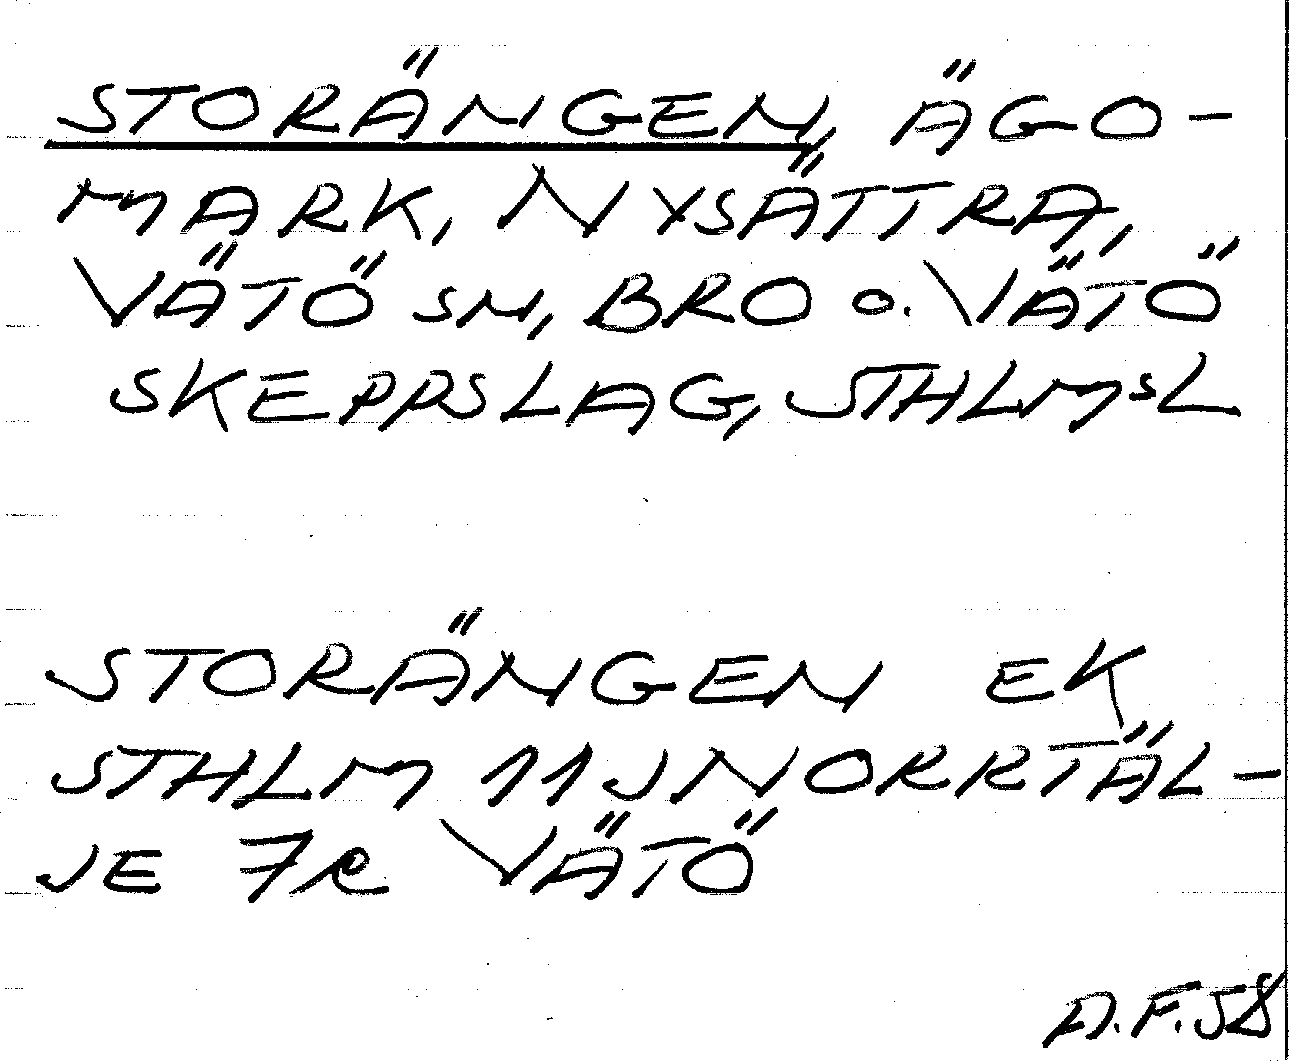 STORÄNGEN, ÄGO-
MARK, NYSÄTTRA,
VÄTÖ SN, BRO O. VÄTÖ
SKEPPSLAG, STHLMSL
STORÄNGEN EK
STHLM 11J NORRTÄL-
JE 7R VÄTÖ
A.F.58